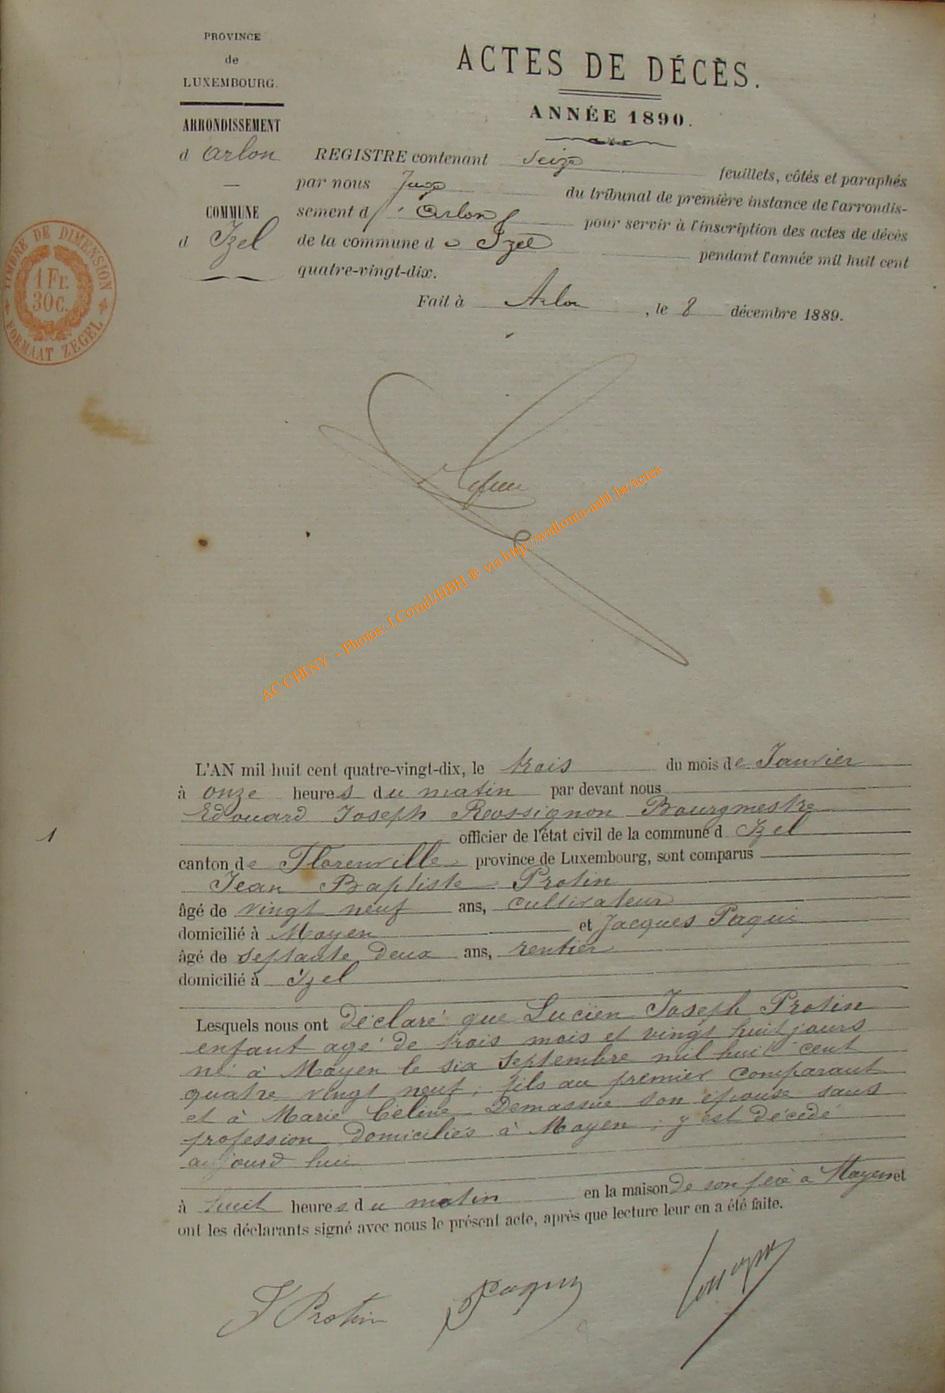 PROVINCE
de
LUXEMBOURG.
ARRONDISSEMENT
d Arlon
COMMUNE
d Izel
TIMBRE DE DIMENSION
1 Fr.
30 C.
FORMAAT ZEGEL
ACTES DE DÉCÈS.
ANNÉE 1890.
REGISTRE contenant seize feuillets, côtés et paraphés
par nous Juge du tribunal de première instance de l'arrondis-
sement d' Arlon pour servir à l'inscription des actes de décès
de la commune d Izel pendant l'année mil huit cent
quatre-vingt-dix.
Fait à Arlon, le 8 décembre 1889.
AC CHINY - Photos J.Cornil/HBH ® via http://wallonia-asbl.be/actes
1
L'AN mil huit cent quatre-vingt-dix, le trois du mois de Janvier
à onze heures du matin par devant nous
Edouard Joseph Rossignon Bourgmestre
officier de l'état civil de la commune d Izel
canton de Florenville province de Luxembourg, sont comparus
Jean Baptiste Protin
âgé de vingt neuf ans, cultivateur
domicilié à Moyen et Jacques Paqui
âgé de septante deux ans, rentier
domicilié à Izel
Lesquels nous ont déclaré que Lucien Joseph Protin
enfant agé de trois mois et vingt huit jours
né à Moyen le six Septembre mil huit cent
quatre vingt neuf, fils au premier comparant
et à Marie Céline Demassue son épouse sans
profession domiciliés à Moyen, y est décédé
aujourd hui
à huit heures du matin en la maison de son père à Moyen et
ont les déclarants signé avec nous le présent acte, après que lecture leur en a été faite.
J Protin Paqui